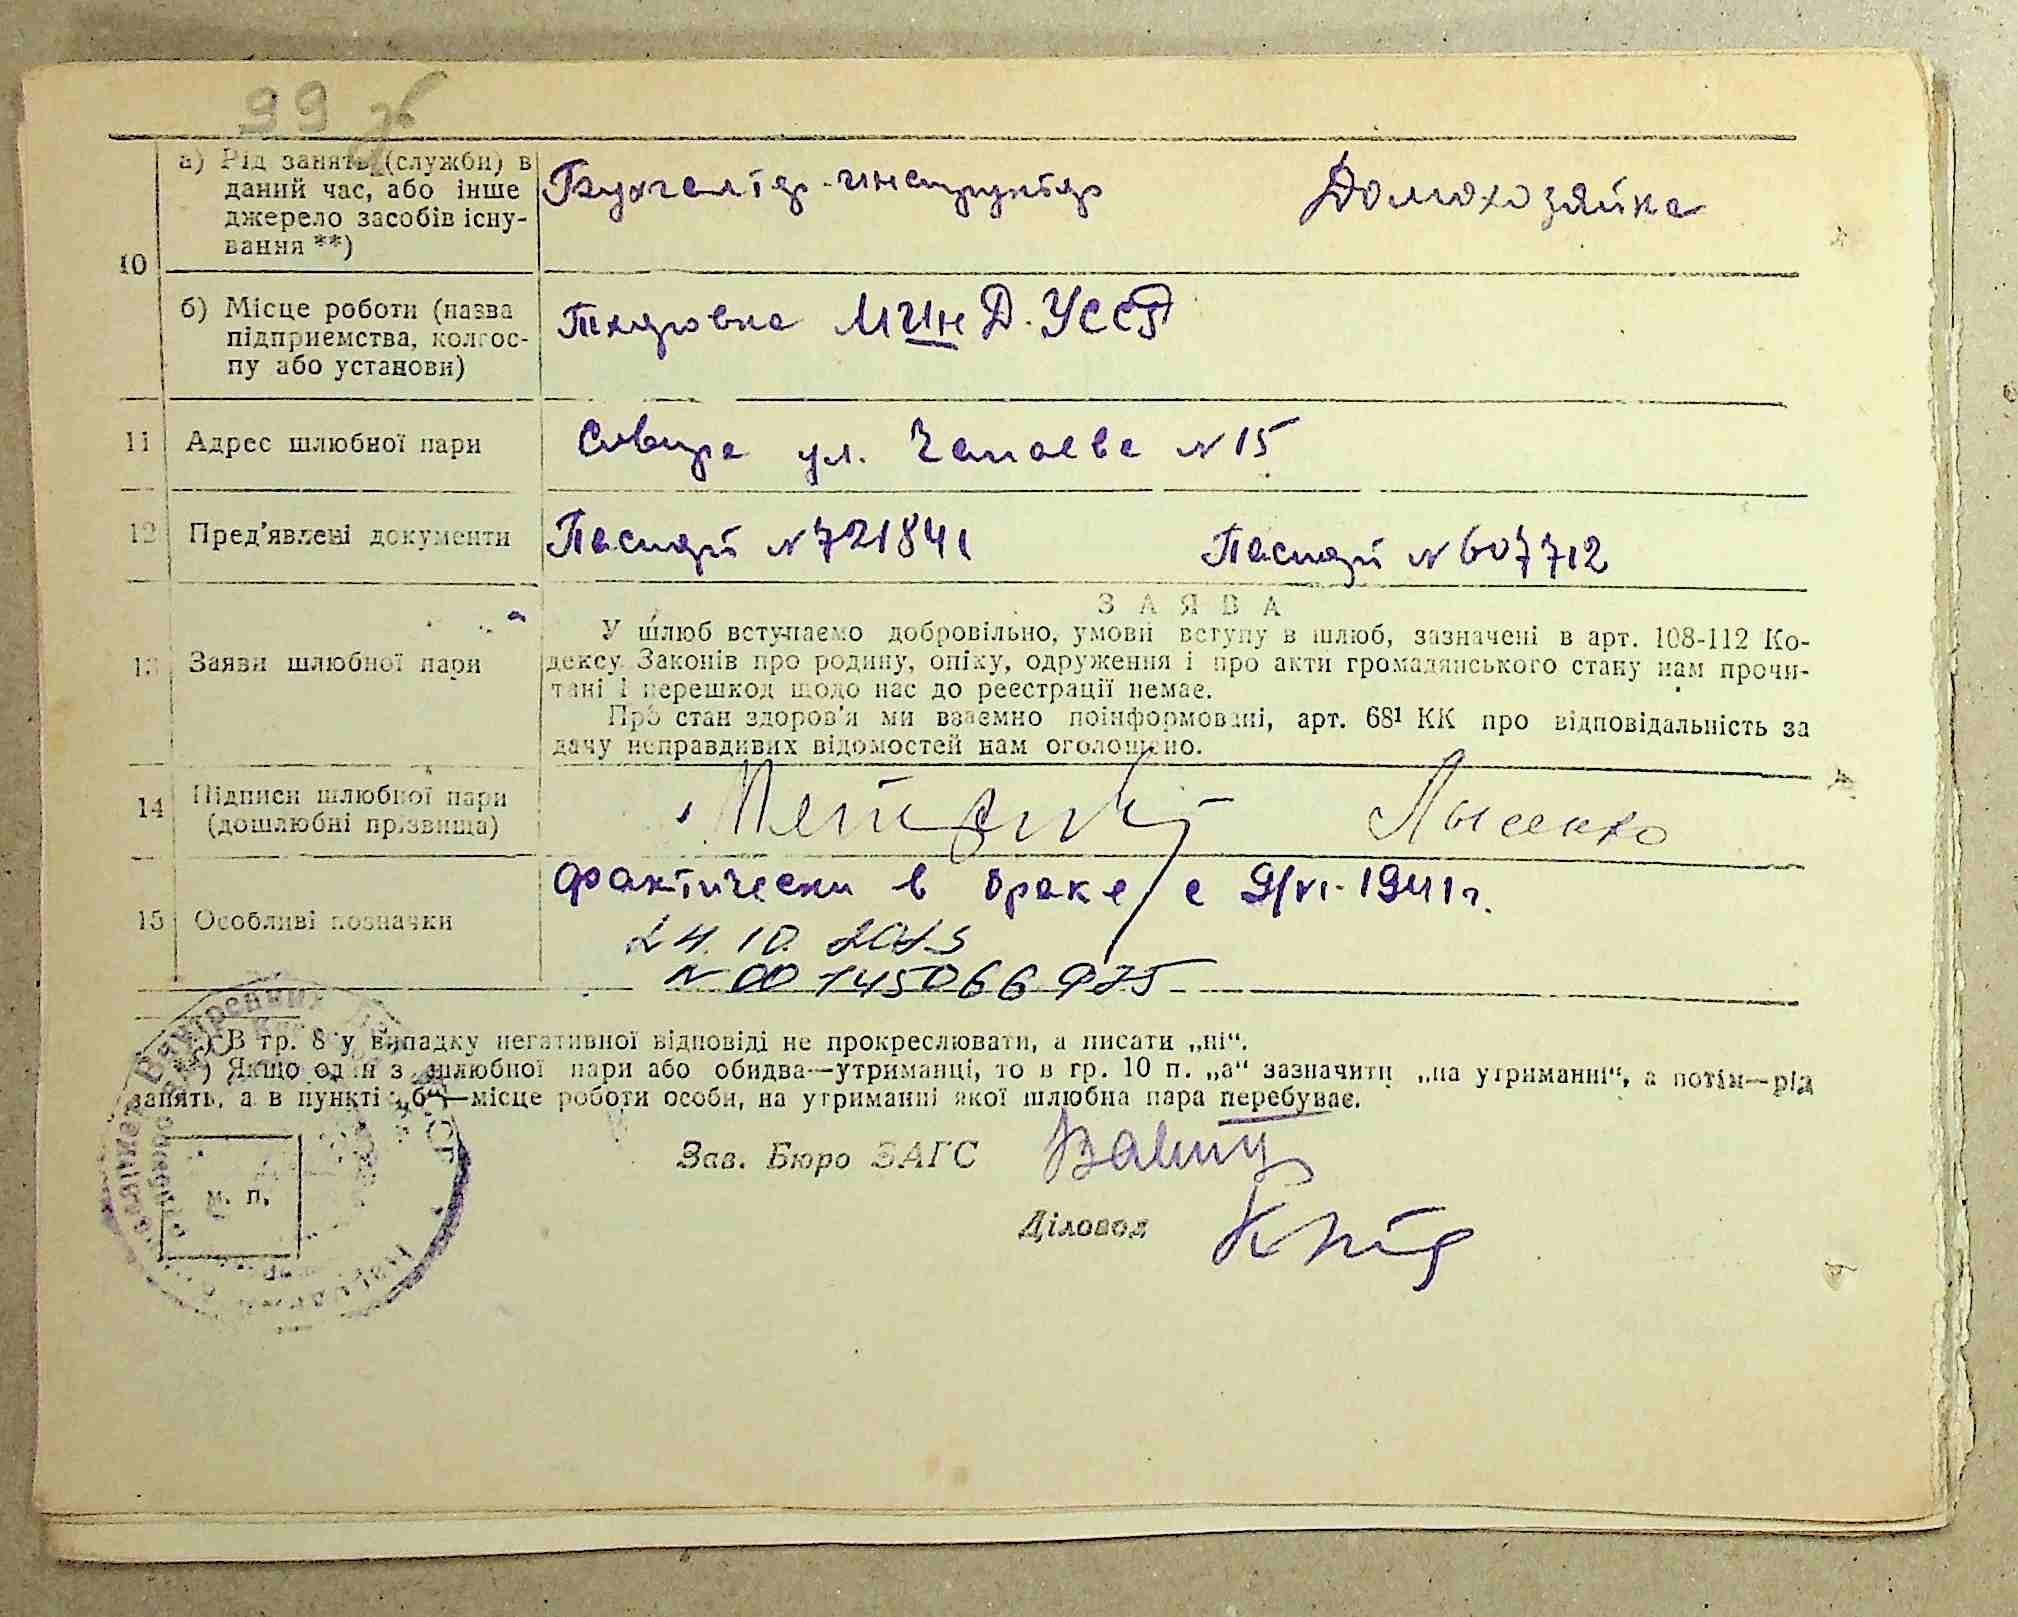 99 зб
а) Рід занять (служби) в
даний час, або інше
джерело засобів існу-
вання **)
Бухгалтер-инструктор
Домохозяйка
10
б) Місце роботи (назва
підприємства, колгос-
пу або установи)
УССР
11 Адрес шлюбної пари
Сквира ул. Чапаева №15
12 Пред'явлені документи
Паспорт №721841
Паспорт №607712
13 Заяви шлюбної пари
ЗАЯВА
У шлюб вступаємо добровільно, умови вступу в шлюб, зазначені в арт. 108-112 Ко-
дексу Законів про родину, опіку, одруження і про акти громадянського стану нам прочи-
тані і перешкод щодо нас до реєстрації немає.
Про стан здоров'я ми взаємно поінформовані, арт. 68¹ КК про відповідальність за
дачу неправдивих відомостей нам оголошено.
14 Підписи шлюбної пари
(дошлюбні прізвища)
Лысенко
15 Особливі позначки
Фактически в браке с 9/VI-1941г.
24.10.2023
N 00145066925
*) В гр. 8 у випадку негативної відповіді не прокреслювати, а писати „ні“.
**) Якщо один з шлюбної пари або обидва—утриманці, то в гр. 10 п. „а“ зазначити „на утриманні“, а потім—рід
занять, а в пункті „б“—місце роботи особи, на утриманні якої шлюбна пара перебуває.
Зав. Бюро ЗАГС
Діловод
м. п.
Внутренних